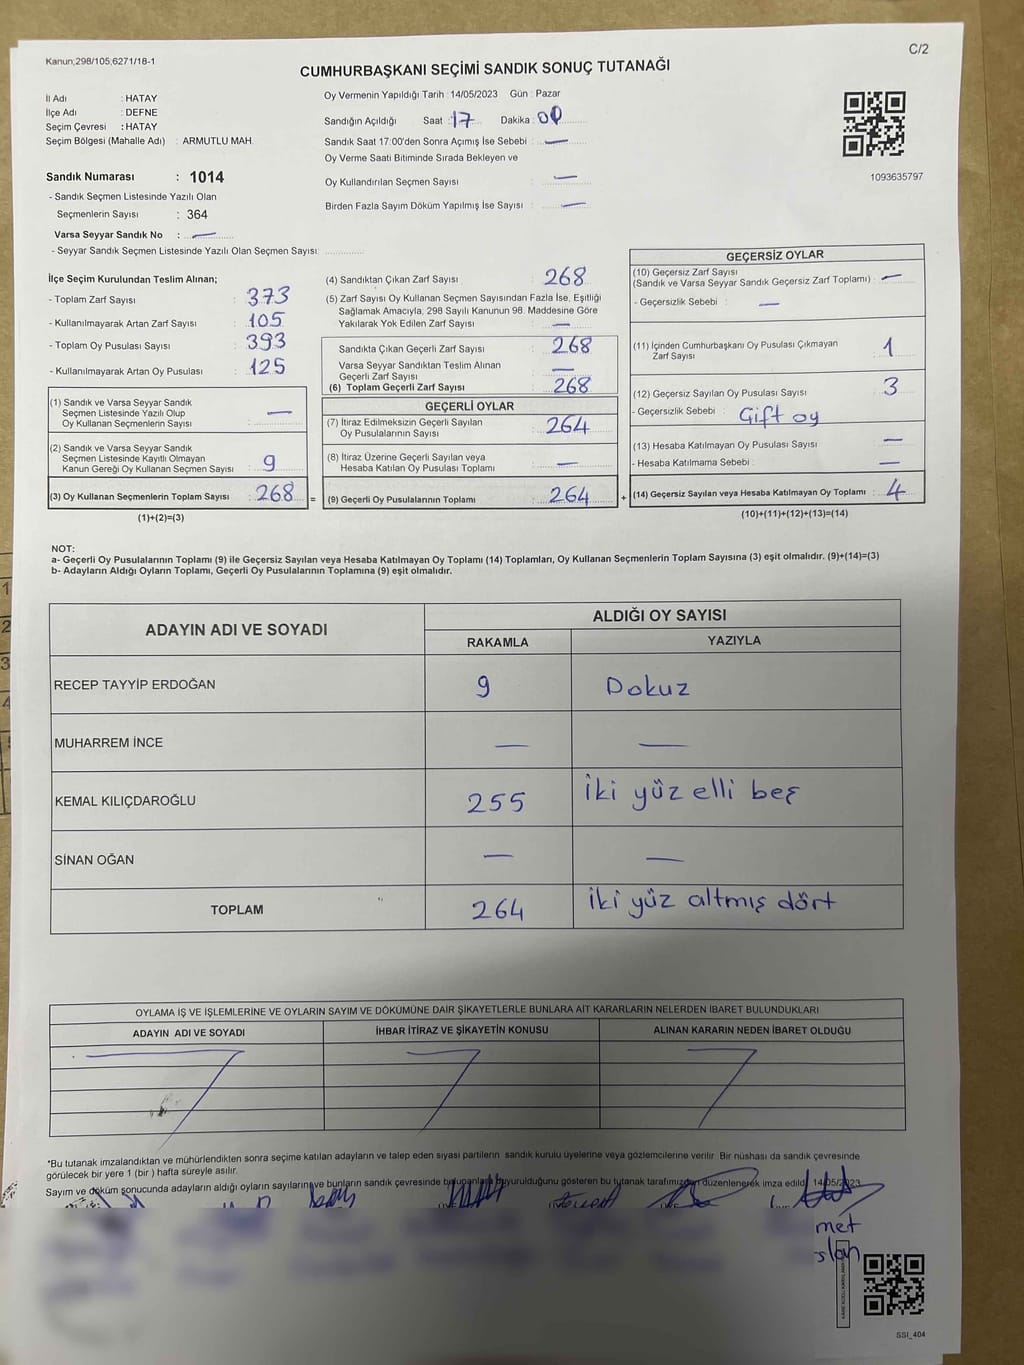 Kanun,298/105,6271/18-1
C/2
CUMHURBAŞKANI SEÇİMİ SANDIK SONUÇ TUTANAĞI
İl Adı : HATAY
İlçe Adı : DEFNE
Seçim Çevresi : HATAY
Seçim Bölgesi (Mahalle Adı) : ARMUTLU MAH.
Sandık Numarası : 1014
- Sandık Seçmen Listesinde Yazılı Olan
Seçmenlerin Sayısı : 364
Varsa Seyyar Sandık No : —
- Seyyar Sandık Seçmen Listesinde Yazılı Olan Seçmen Sayısı:
Oy Vermenin Yapıldığı Tarih : 14/05/2023 Gün : Pazar
Sandığın Açıldığı Saat : 17 Dakika : 00
Sandık Saat 17:00'den Sonra Açımış İse Sebebi : —
Oy Verme Saati Bitiminde Sırada Bekleyen ve
Oy Kullandırılan Seçmen Sayısı : —
Birden Fazla Sayım Döküm Yapılmış İse Sayısı : —
1093635797
İlçe Seçim Kurulundan Teslim Alınan;
- Toplam Zarf Sayısı : 373
- Kullanılmayarak Artan Zarf Sayısı : 105
- Toplam Oy Pusulası Sayısı : 393
- Kullanılmayarak Artan Oy Pusulası : 125
(1) Sandık ve Varsa Seyyar Sandık
Seçmen Listesinde Yazılı Olup
Oy Kullanan Seçmenlerin Sayısı : —
(2) Sandık ve Varsa Seyyar Sandık
Seçmen Listesinde Kayıtlı Olmayan
Kanun Gereği Oy Kullanan Seçmen Sayısı : 9
(3) Oy Kullanan Seçmenlerin Toplam Sayısı : 268
(1)+(2)=(3)
(4) Sandıktan Çıkan Zarf Sayısı : 268
(5) Zarf Sayısı Oy Kullanan Seçmen Sayısından Fazla İse, Eşitliği
Sağlamak Amacıyla, 298 Sayılı Kanunun 98. Maddesine Göre
Yakılarak Yok Edilen Zarf Sayısı : —
Sandıkta Çıkan Geçerli Zarf Sayısı : 268
Varsa Seyyar Sandıktan Teslim Alınan
Geçerli Zarf Sayısı : —
(6) Toplam Geçerli Zarf Sayısı : 268
GEÇERLİ OYLAR
(7) İtiraz Edilmeksizin Geçerli Sayılan
Oy Pusulalarının Sayısı : 264
(8) İtiraz Üzerine Geçerli Sayılan veya
Hesaba Katılan Oy Pusulası Toplamı : —
= (9) Geçerli Oy Pusulalarının Toplamı : 264
GEÇERSİZ OYLAR
(10) Geçersiz Zarf Sayısı
(Sandık ve Varsa Seyyar Sandık Geçersiz Zarf Toplamı) : —
- Geçersizlik Sebebi : —
(11) İçinden Cumhurbaşkanı Oy Pusulası Çıkmayan
Zarf Sayısı : 1
(12) Geçersiz Sayılan Oy Pusulası Sayısı : 3
- Geçersizlik Sebebi : Çift oy
(13) Hesaba Katılmayan Oy Pusulası Sayısı : —
- Hesaba Katılmama Sebebi : —
+ (14) Geçersiz Sayılan veya Hesaba Katılmayan Oy Toplamı : 4
(10)+(11)+(12)+(13)=(14)
NOT:
a- Geçerli Oy Pusulalarının Toplamı (9) ile Geçersiz Sayılan veya Hesaba Katılmayan Oy Toplamı (14) Toplamları, Oy Kullanan Seçmenlerin Toplam Sayısına (3) eşit olmalıdır. (9)+(14)=(3)
b- Adayların Aldığı Oyların Toplamı, Geçerli Oy Pusulalarının Toplamına (9) eşit olmalıdır.
ADAYIN ADI VE SOYADI ALDIĞI OY SAYISI
RAKAMLA YAZIYLA
RECEP TAYYİP ERDOĞAN 9 Dokuz
MUHARREM İNCE — —
KEMAL KILIÇDAROĞLU 255 İki yüz elli beş
SİNAN OĞAN — —
TOPLAM 264 İki yüz altmış dört
OYLAMA İŞ VE İŞLEMLERİNE VE OYLARIN SAYIM VE DÖKÜMÜNE DAİR ŞİKAYETLERLE BUNLARA AİT KARARLARIN NELERDEN İBARET BULUNDUKLARI
ADAYIN ADI VE SOYADI İHBAR İTİRAZ VE ŞİKAYETİN KONUSU ALINAN KARARIN NEDEN İBARET OLDUĞU
*Bu tutanak imzalandıktan ve mühürlendikten sonra seçime katılan adayların ve talep eden siyasi partilerin sandık kurulu üyelerine veya gözlemcilerine verilir. Bir nüshası da sandık çevresinde
görülecek bir yere 1 (bir) hafta süreyle asılır.
Sayım ve döküm sonucunda adayların aldığı oyların sayıların ve bunların sandık çevresinde duyurulduğunu gösteren bu tutanak tarafımızdan düzenlenerek imza edildi. 14/05/2023
met
slan
SSI_404